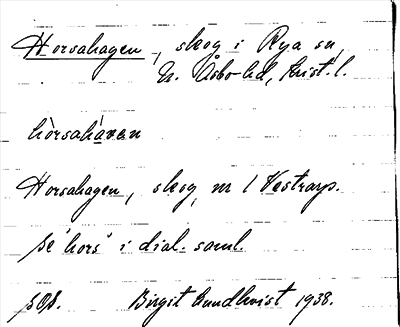 Horsahagen, skog i Rya sn,
N. Åsbo hd, Krist. l.
hòrsahàven
Horsahagen, skog, nr 1 Västrarp.
Se 'hors' i dial. saml.
Birgit Lundkvist 1938.